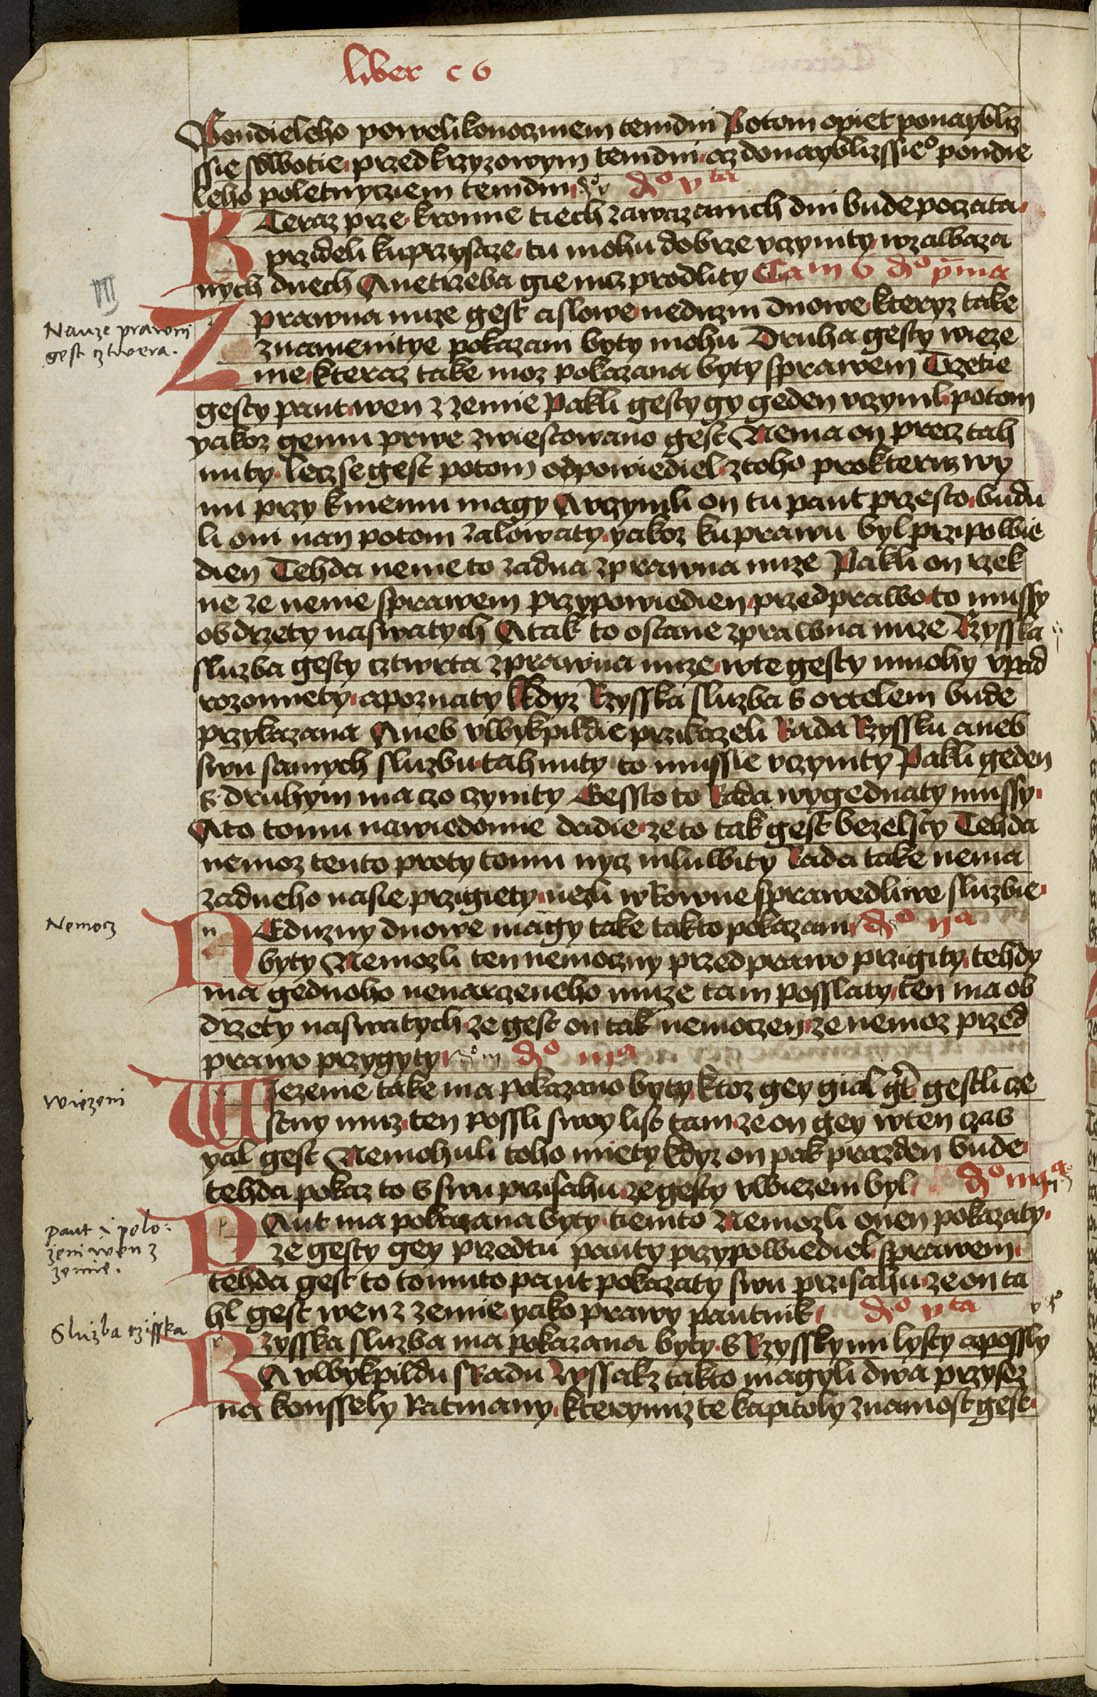 liber c 6
Pondieleho powelikonoczniem temdni Potom opiet ponaybliz
ssie sobotie przed krzyzowym temdni az donayblizssieo pondie
leho poletnycziem temdni do vta
Kteraz prze kromie tiech zawazanich dni bude poczata
przideli kuprzysaze tu mohu dobrze vczynity wzalbaza
nych dnech Anetrzeba gie nicz prodlity Cam 6 do pma
Z prawna nuze gest cislowe neduzni dnowe kteryz take
Nauze prawni
gest cztwera.
znamenitye pokazani byty mohu Druha gesty wieze
nie kteraz take moz pokazana byty sprawem Trzetie
gesty paut wen z zemie Pakli gesty gy geden vczynil potom
yakoz gemu prwe zwiestowano gest Nema on precz tah
nuty lecz se gest potom odpowiediel ztoho prokteruz wy
nu przy kniemu magy Avczynili on tu paut przesto budu
li oni nan potom zalowaty yakoz kuprawu byl przipowie
dien Tehda neme to zadna zprawna nuze Pakli on rzek
ne ze neme sprawem przypowiedien przed prawo to mussy
obdrzety naswatych Atak to ostane zprawna nuze Rzysska
sluzba gesty cztwrta zprawna nuze wte gesty mnohy vpad
rozomiety apoznaty Kdyz Rzysska sluzba s ortelem bude
przykazana Aneb vwykpildie przikazeli Rada Rzyssku aneb
swu samych sluzbu tahnuty to mussie vczynity Pakli geden
s druhym ma czo czynity Gessto to Rada wygednaty mussy
Ato tomu nawiedomie dadie ze to tak gest bezelsty Tehda
nemoz tento proty tomu nycz mluwity Rada take nema
zadneho nasie przigiety nezli wkowne sprawedliwe sluzbie
Nemocz
NEduzny dnowe magy take takto pokazani do iia
byty Nemozli ten nemoczny przed prawo przigity tehdy
ma gednoho nenarczeneho muze tam posslaty ten ma ob
drzety naswatych ze gest on tak nemoczen ze nemoz przed
prawo przygyty do iiia
Wiezeni
Wiezenie take ma pokazano byty ktoz gey gial gt gestli ze
stny muz ten possli swoy list tam ze on gey wten czas
yal gest Nemohuli toho miety kdyz on pak prazden bude
tehda pokaz to s swu przisahu ze gesty vwiezeni byl do iiiia
Paut i polo:
zeni wen z
zemie.
PAut ma pokazana byty tiemto Nemozli onen pokazaty
ze gesty gey przedtu pauty przypowiediel sprawem
tehda gest to tomuto paut pokazaty swu przisahu ze on ta
hl gest wen z zemie yako prawy pautnik do vta
Sluzba rzisska
Rzysska sluzba ma pokazana byty s Rzysskymi lysty apossly
A vwykpildu s Radu Ryssakz takto magyli dwa przysez
na konssely Ratmany kterymz te kapitoly znamost gest